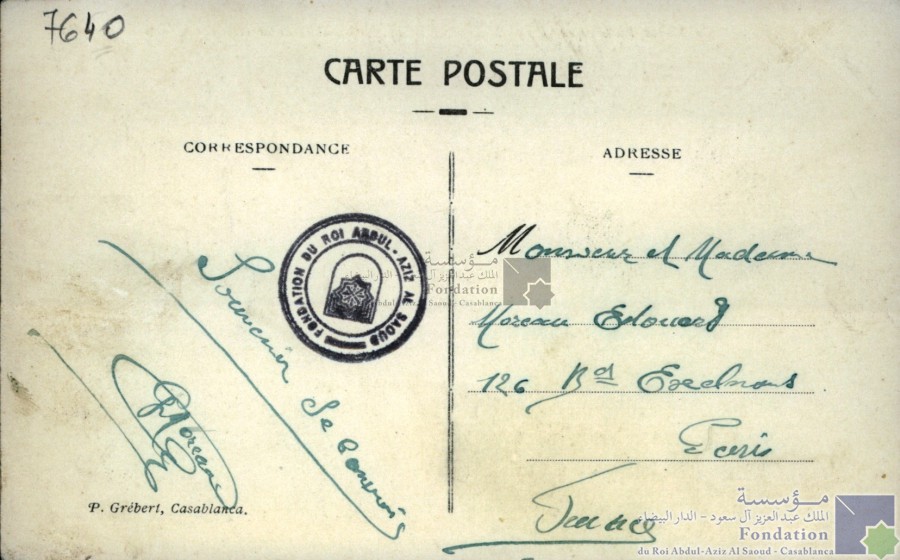 7640
CARTE POSTALE
CORRESPONDANCE
ADRESSE
Souvenir
Moreau
P. Grébert, Casablanca.
Monsieur et Madame
Moreau Edouard
126 Bd Exelmans
Paris
France
FONDATION DU ROI ABDUL-AZIZ AL SAOUD
مؤسسة
الملك عبد العزيز آل سعود - الدار البيضاء
Fondation
du Roi Abdul-Aziz Al Saoud - Casablanca
مؤسسة
الملك عبد العزيز آل سعود - الدار البيضاء
Fondation
du Roi Abdul-Aziz Al Saoud - Casablanca